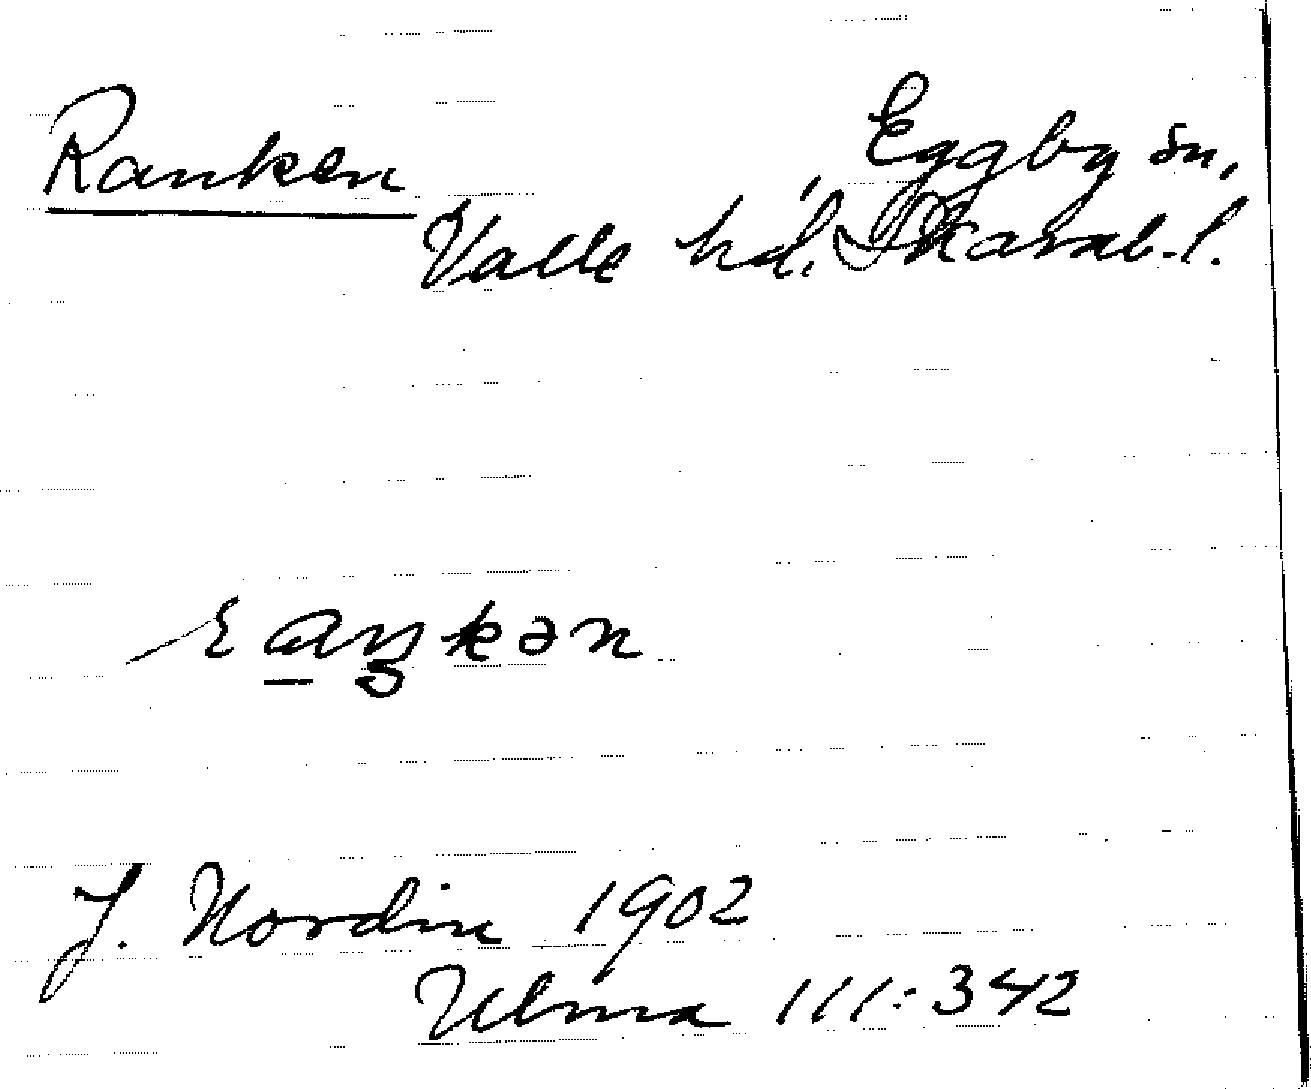 Ranken
Eggby sn,
Valle hd, Skarab. l.
J. Nordin 1902
Ulma 111:342